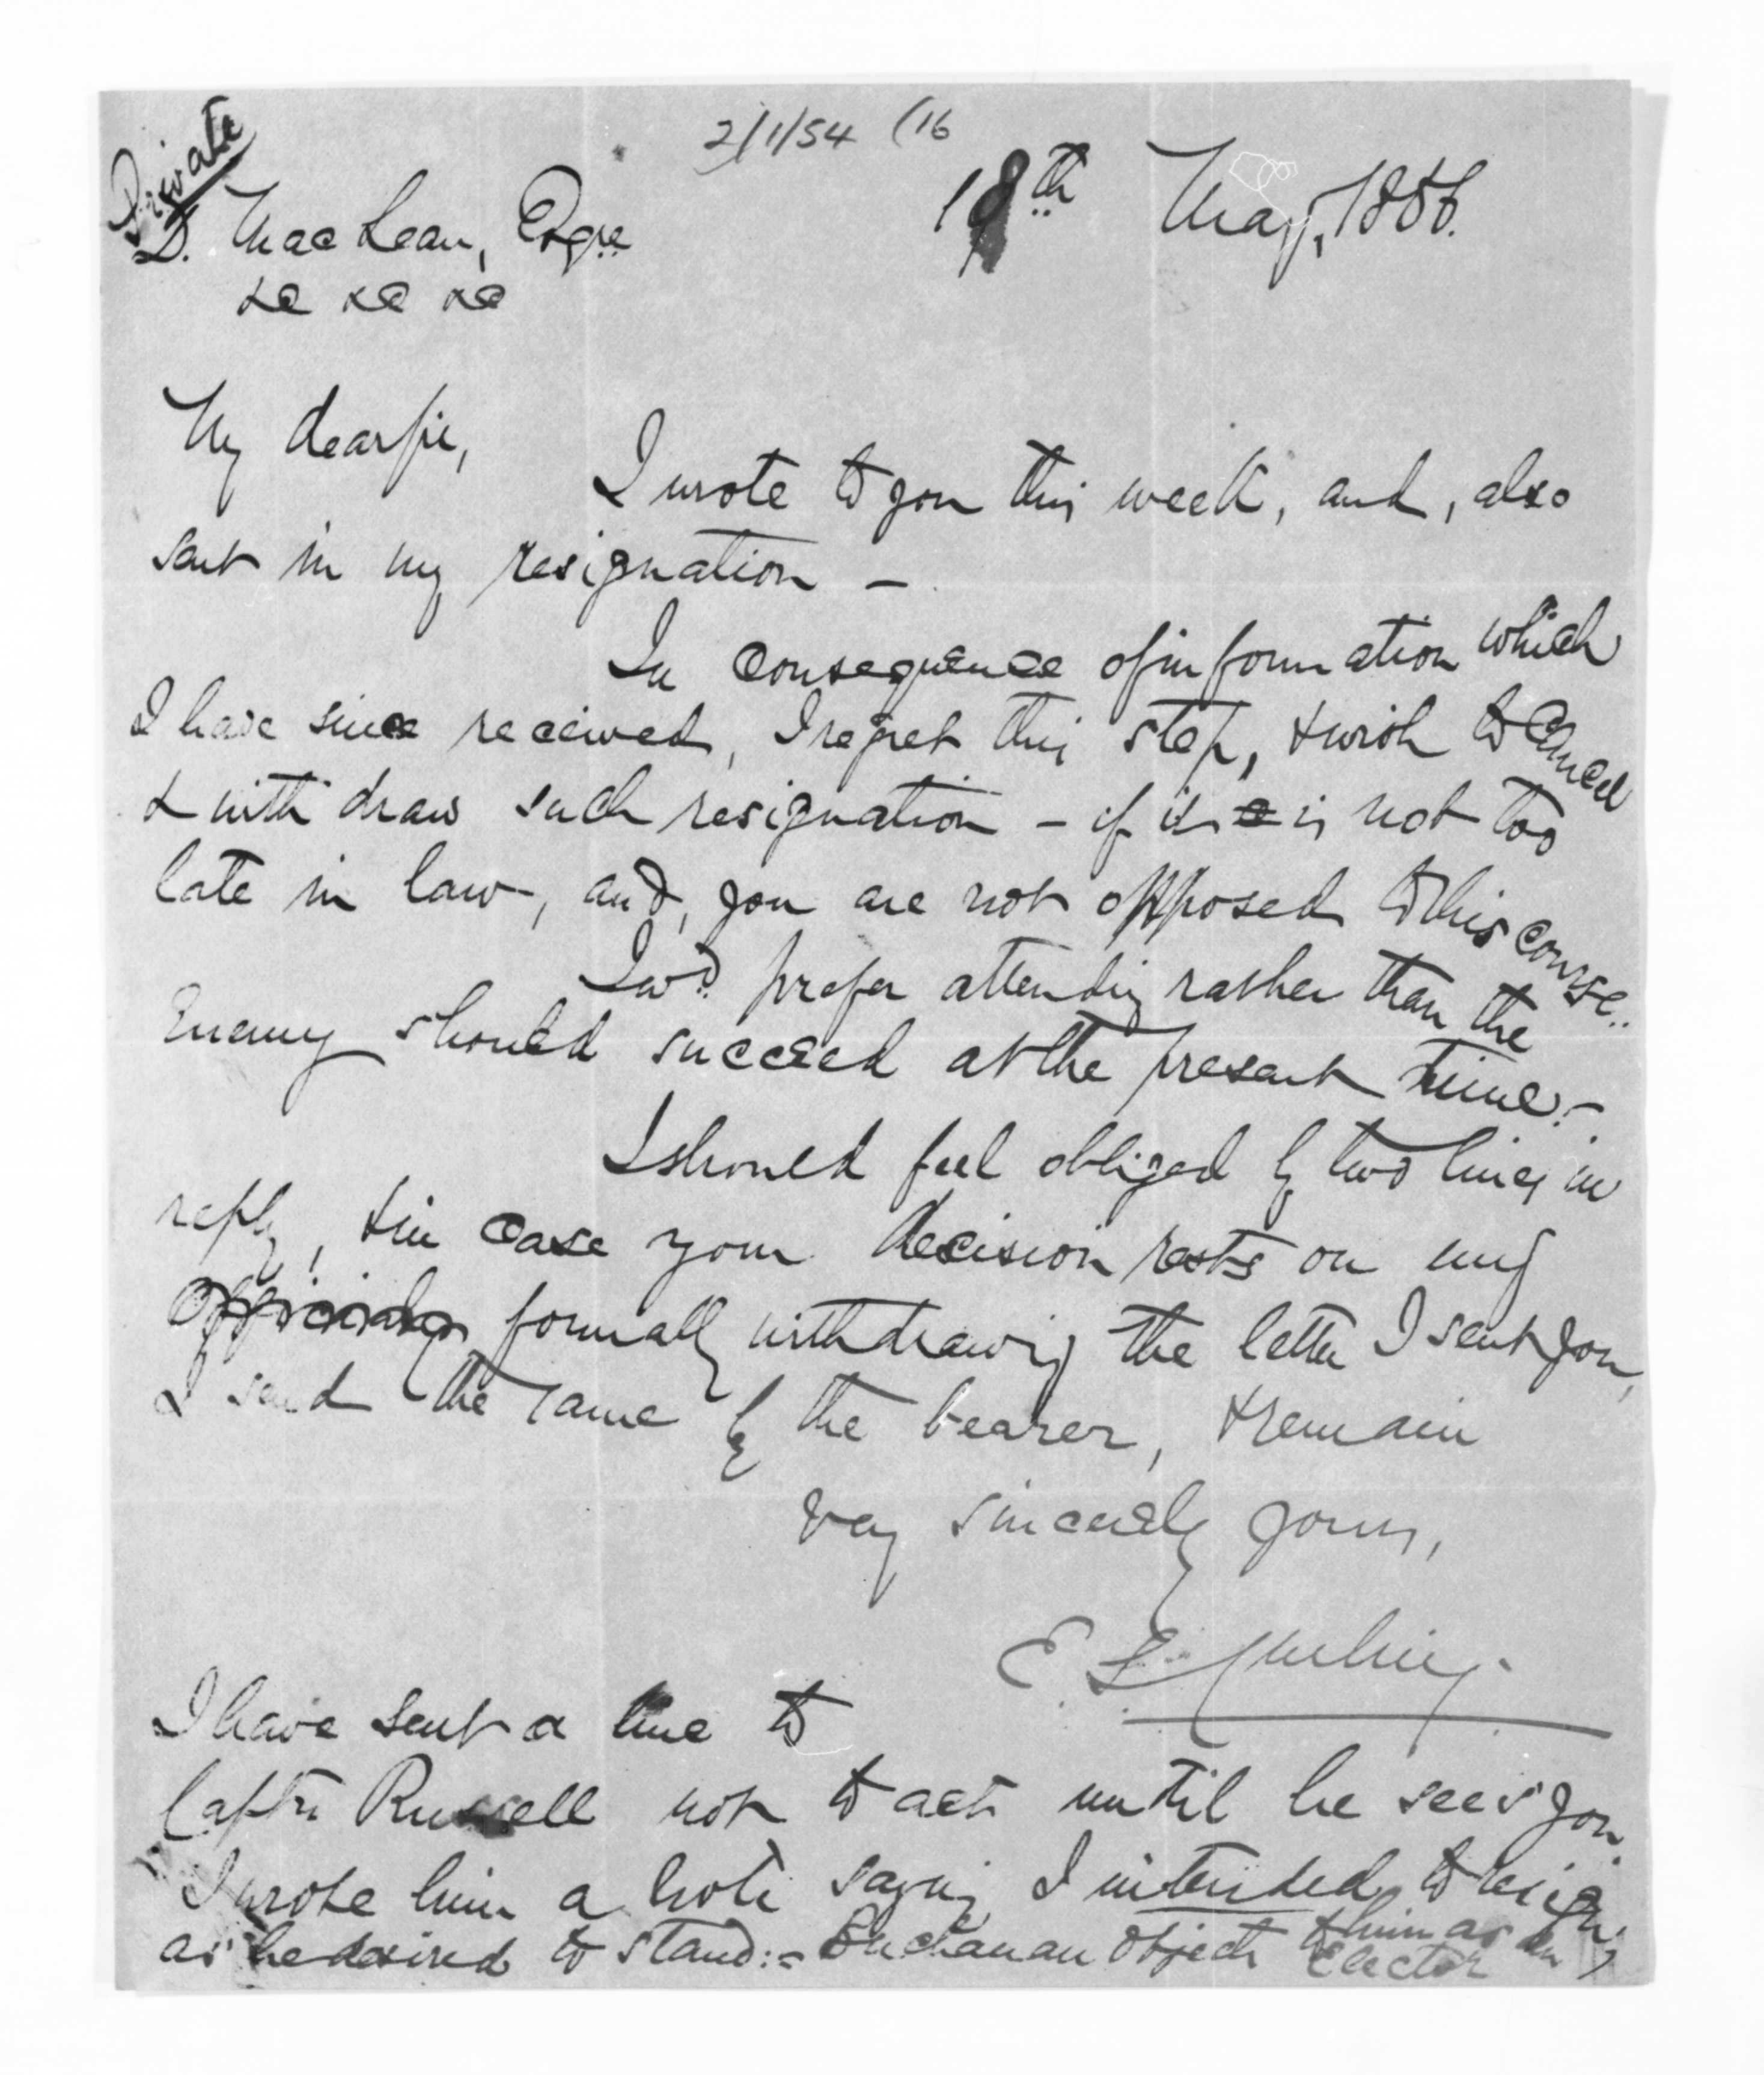 2/1/54 (16
Private
18th May, 1856.
D. MacLean, Esqre
&c &c &c
My dear Sir,
I wrote to you this week, and, also
sent in my resignation —
In consequence of information which
I have since received, I regret this step, & wish to cancel
& with draw such resignation – if it is not too
late in law, and, you are not opposed to this course..
I wd. prefer attending rather than the
Enemy should succeed at the present time. –
I should feel obliged by two lines in
reply, & in case your decision rests on my
officially formally withdrawing the letter I sent you,
I send the same by the bearer, & remain
Very sincerely yours,
E. L.
I have sent a line to
Captn Russell not to act until he sees you.
I wrote him a note saying I intended to resign,
as he desired to stand:= Buchanan objects to him as an
Elector